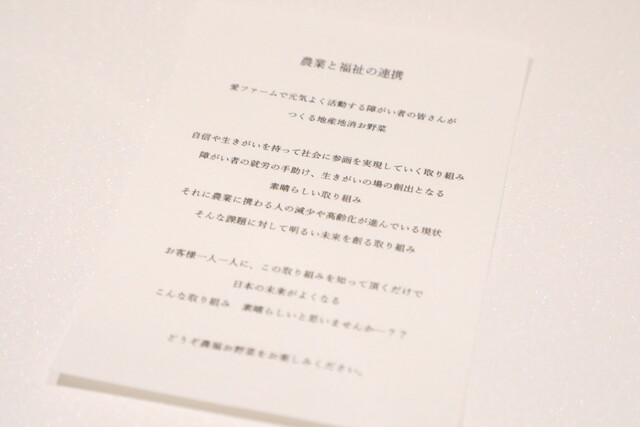 農業と福祉の連携
愛ファームで元気よく活動する障がい者の皆さんが
つくる地産地消お野菜
自信や生きがいを持って社会に参画を実現していく取り組み
障がい者の就労の手助け、生きがいの場の創出となる
素晴らしい取り組み
それに農業に携わる人の減少や高齢化が進んでいる現状
そんな課題に対して明るい未来を創る取り組み
お客様一人一人に、この取り組みを知って頂くだけで
日本の未来がよくなる
こんな取り組み　素晴らしいと思いませんか―？？
どうぞ農福お野菜をお楽しみください。